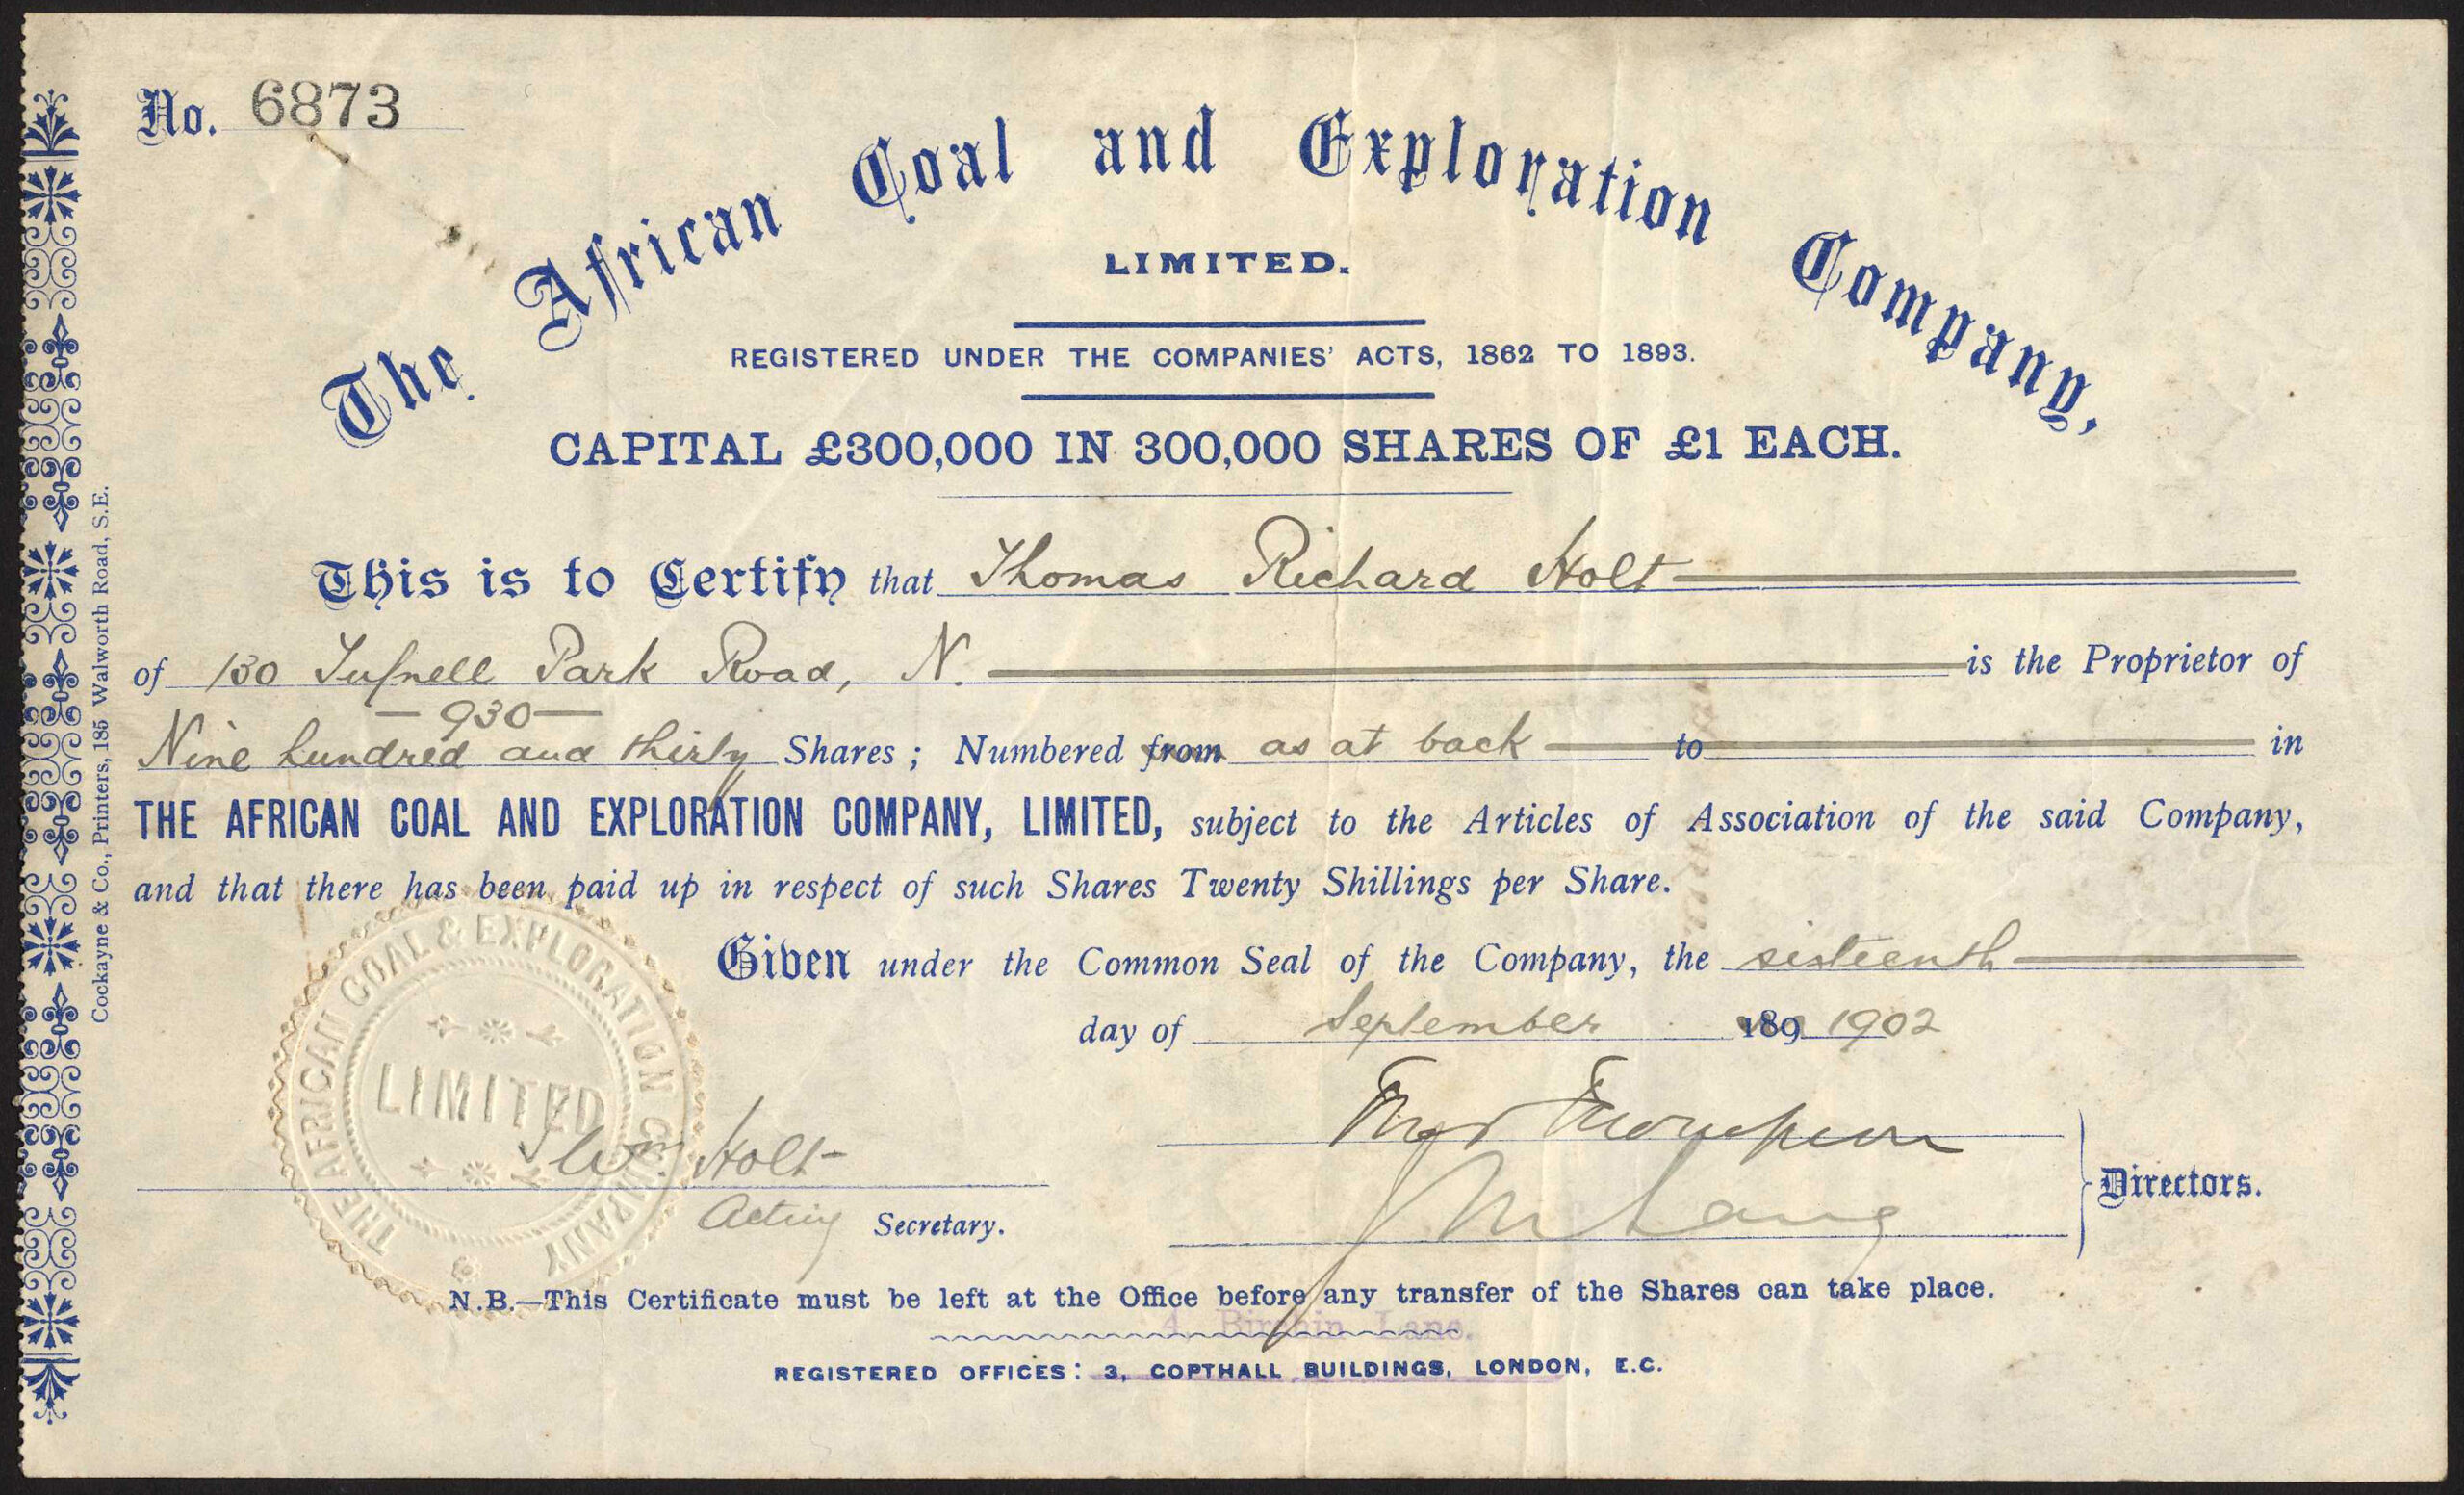 No. 6873
The African Coal and Exploration Company,
LIMITED.
REGISTERED UNDER THE COMPANIES' ACTS, 1862 TO 1893.
CAPITAL £300,000 IN 300,000 SHARES OF £1 EACH.
This is to Certify that Thomas Richard Holt
of 130 Tufnell Park Road, N. is the Proprietor of
— 930 —
Nine hundred and thirty Shares ; Numbered from as at back to in
THE AFRICAN COAL AND EXPLORATION COMPANY, LIMITED, subject to the Articles of Association of the said Company,
and that there has been paid up in respect of such Shares Twenty Shillings per Share.
Given under the Common Seal of the Company, the sixteenth
day of September 189 1902
THE AFRICAN COAL & EXPLORATION COMPANY
LIMITED
Wm. Holt
Acting Secretary.
Directors.
N.B.—This Certificate must be left at the Office before any transfer of the Shares can take place.
4, Birchin Lane.
REGISTERED OFFICES: 3, COPTHALL BUILDINGS, LONDON, E.C.
Cockayne & Co., Printers, 185 Walworth Road, S.E.